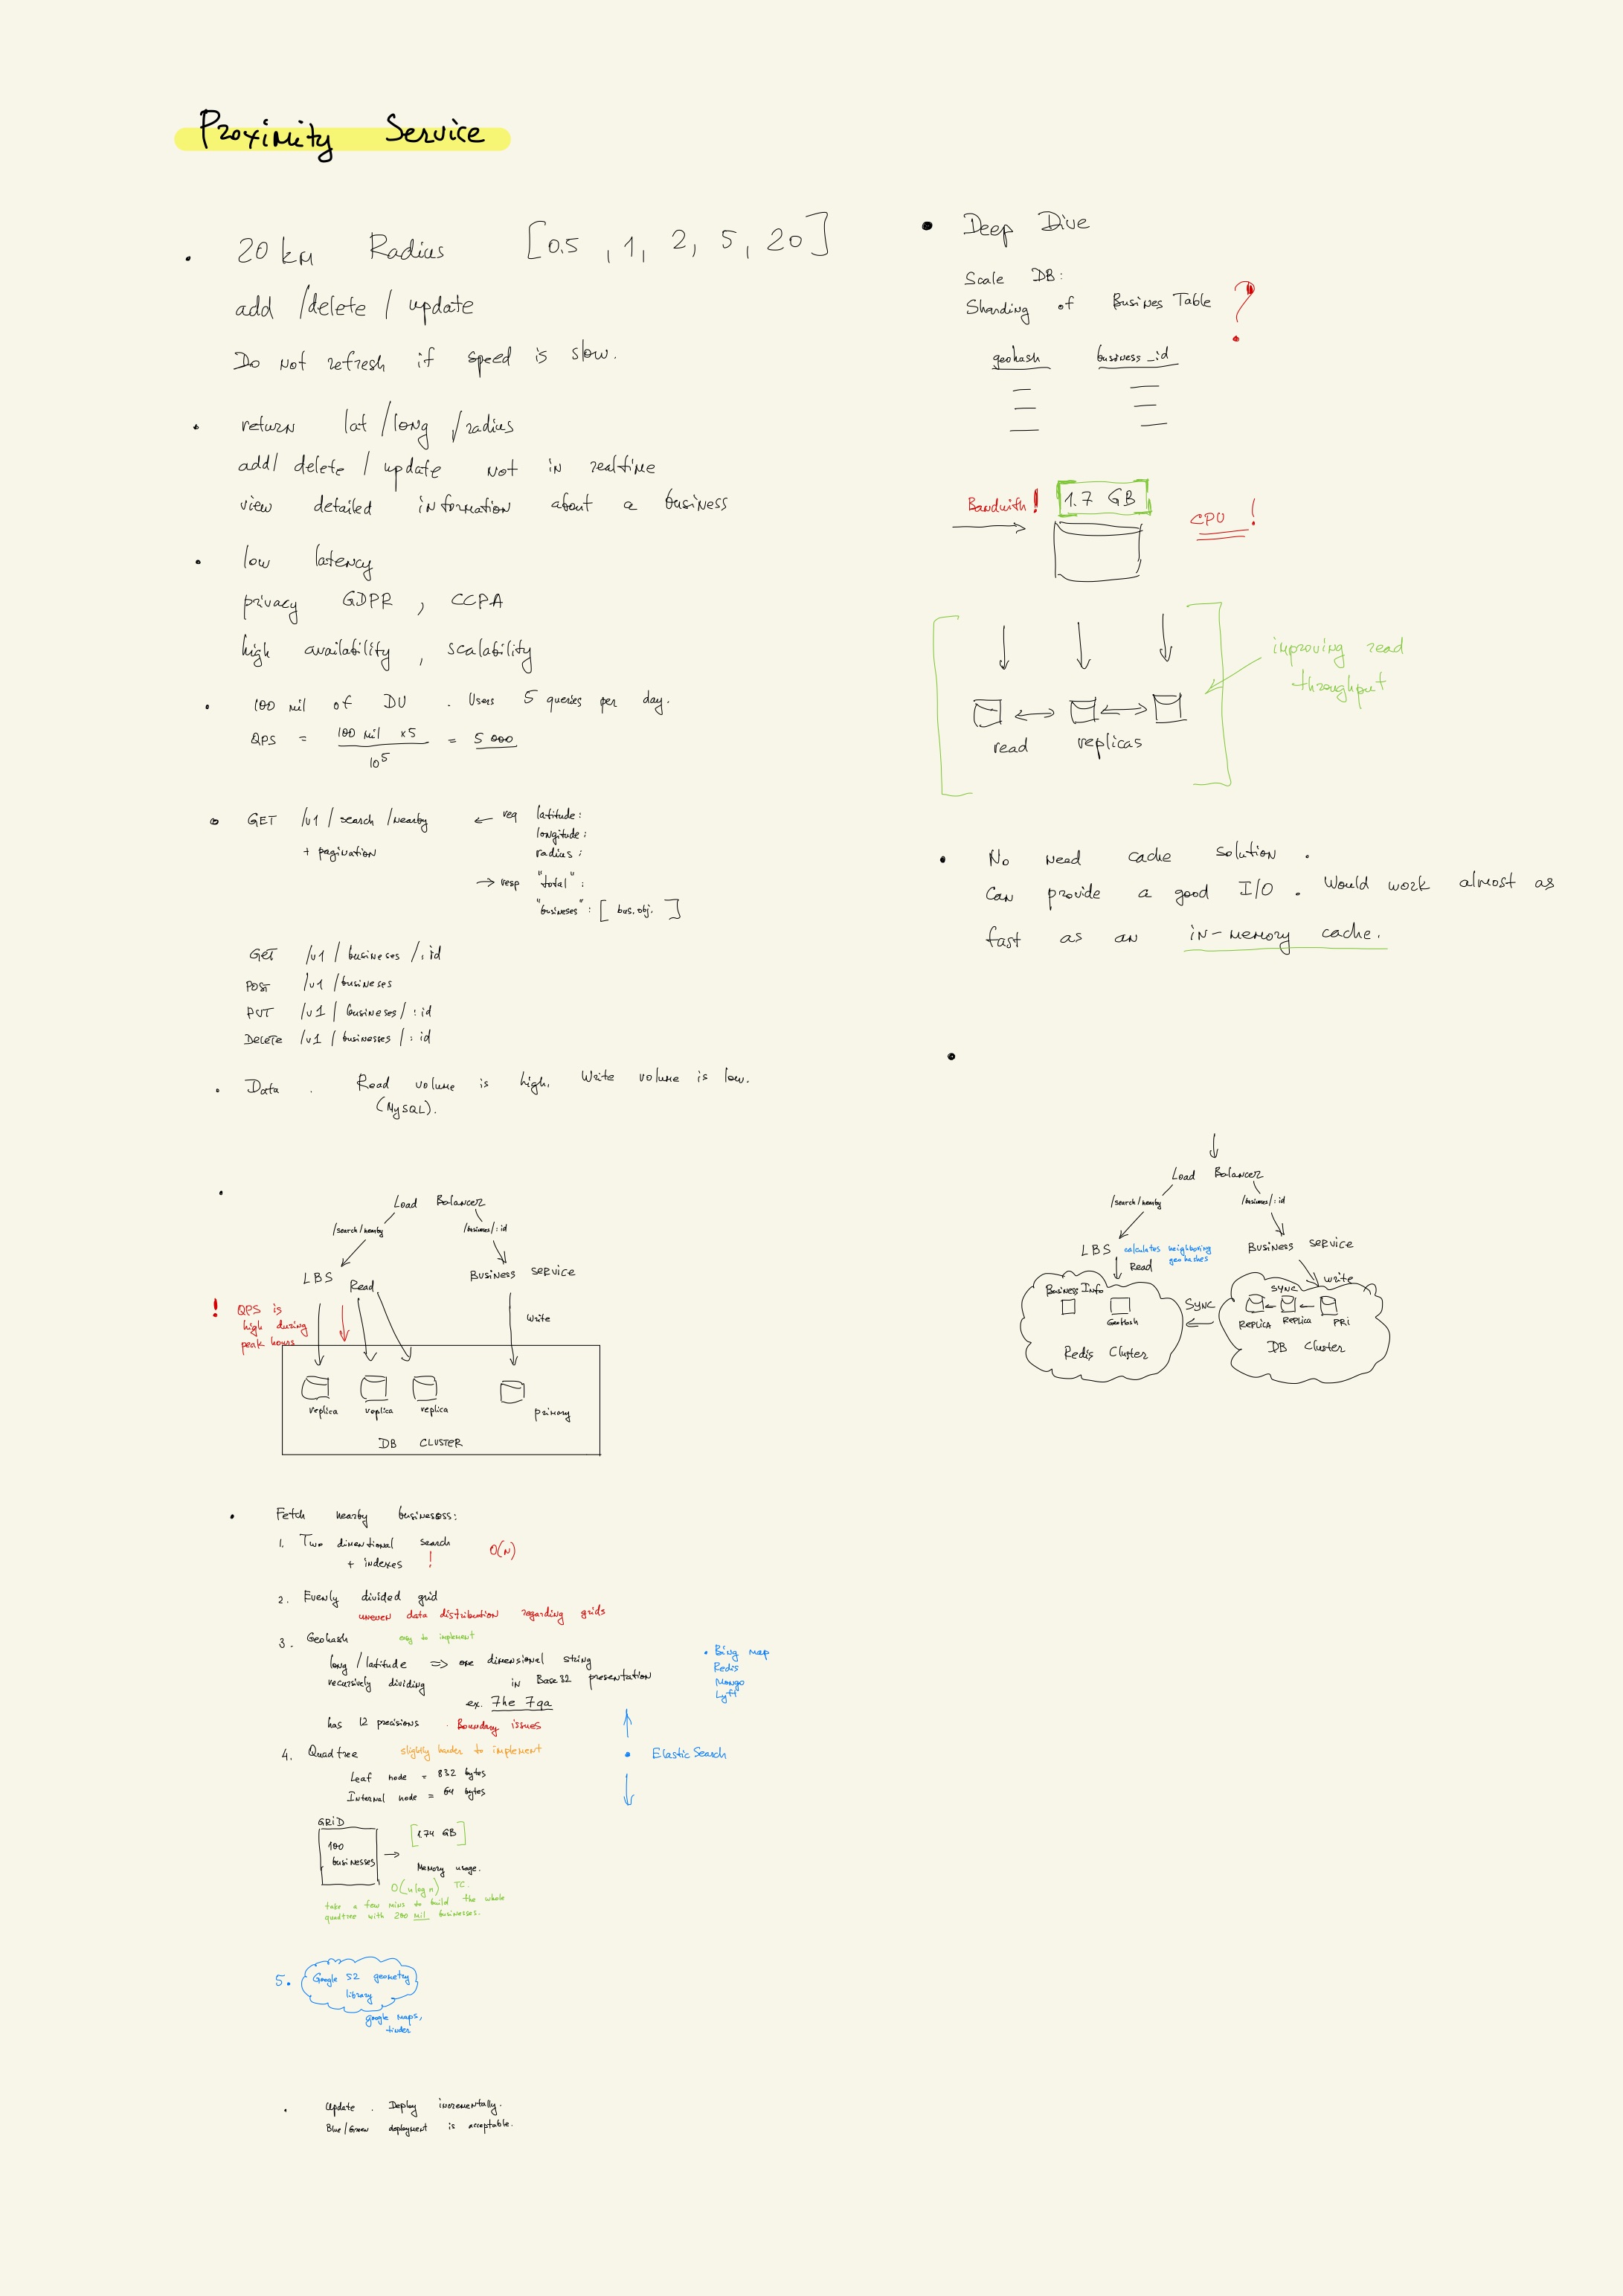 Proximity Service
• 20 km Radius [0.5, 1, 2, 5, 20]
add /delete / update
Do not refresh if speed is slow.
• return lat /long /radius
add/ delete / update not in realtime
view detailed information about a business
• low latency
privacy GDPR , CCPA
high availability , scalability
• 100 mil of DU . Users 5 queries per day.
QPS = 100 mil x5 / 10^5 = 5 000
• GET /v1 / search /nearby ← req latitude:
longitude:
+ pagination radius:
→ resp "total":
"busineses": [ bus. obj. ]
GET /v1 / busineses /:id
POST /v1 / busineses
PUT /v1 / busineses / :id
DELETE /v1 / businesses / : id
• Data . Read volume is high, Write volume is low.
(MySQL).
• Load Balancer
/search/nearby /busines/:id
LBS Read Business SERVICE
! QPS is
high during
peak hours
Write
replica replica replica primary
DB CLUSTER
• Fetch nearby businesess:
1. Two dimentional search O(N)
+ indexes !
2. Evenly divided grid
uneven data distribution regarding grids
3. Geohash easy to implement
long / latitude => one dimensional string
recursively dividing in Base32 presentation
ex. 7he 7qa
has 12 precisions . Boundary issues
• Bing map
Redis
Mongo
Lyft
4. Quadtree slightly harder to implement
• Elastic Search
Leaf node = 832 bytes
Internal node = 64 bytes
GRID
100
businesses
→ [1.74 GB]
Memory usage.
O(n log n) TC.
take a few mins to build the whole
quadtree with 200 mil businesses.
5. Google S2 geometry
library
google maps,
tinder
• Update . Deploy incrementally.
Blue/Green deployment is acceptable.
• Deep Dive
Scale DB:
Sharding of Busines Table ?
geohash business_id
Bandwith! 1.7 GB CPU !
improving read
throughput
read replicas
• No need cache solution .
Can provide a good I/O . Would work almost as
fast as an in-memory cache.
•
Load Balancer
/search/nearby /busines/:id
LBS calculates neighboring
geohashes
Business SERVICE
Read write
Business Info
GeoHash
Redis Cluster
Sync
SYNC
REPLICA Replica PRI
DB Cluster